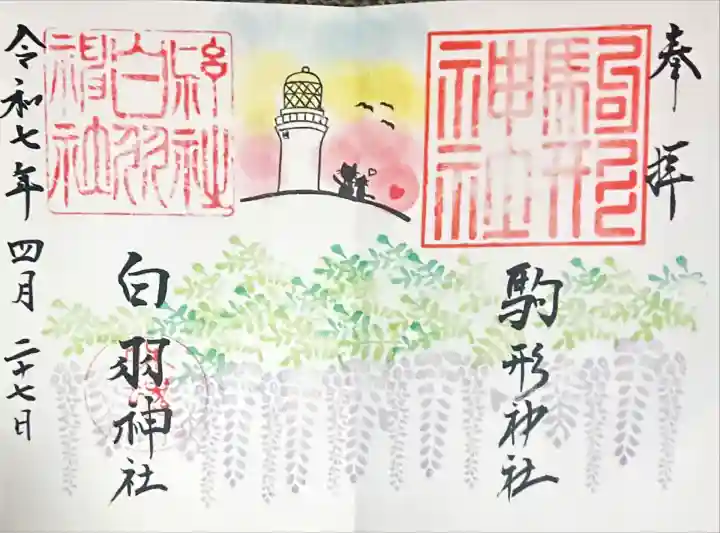 奉拝
駒形神社
駒形神社
白羽神社
令和七年四月二十七日